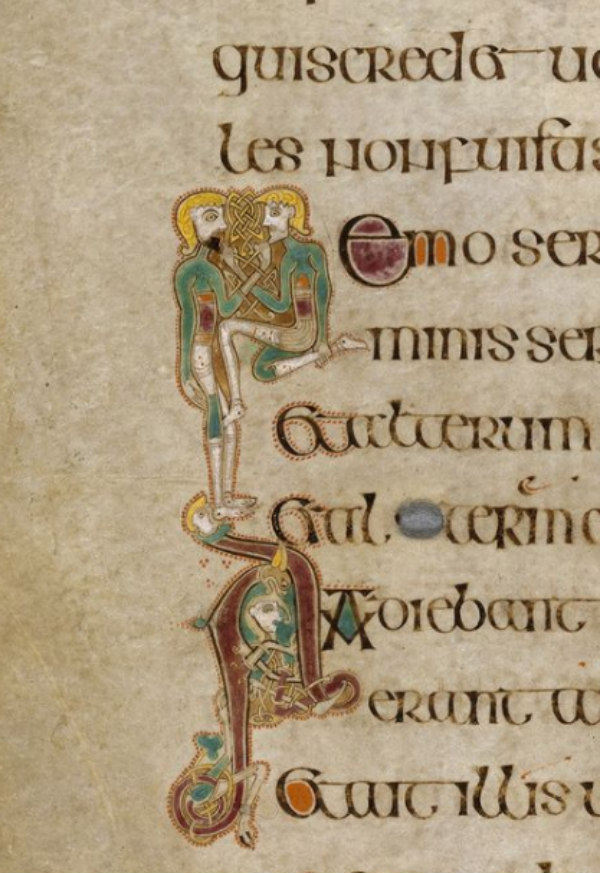 quis credet uo
les non fuistis
Nemo ser
minis ser
et alterum
et al terum c
Audiebant
erant a
et ait illis u